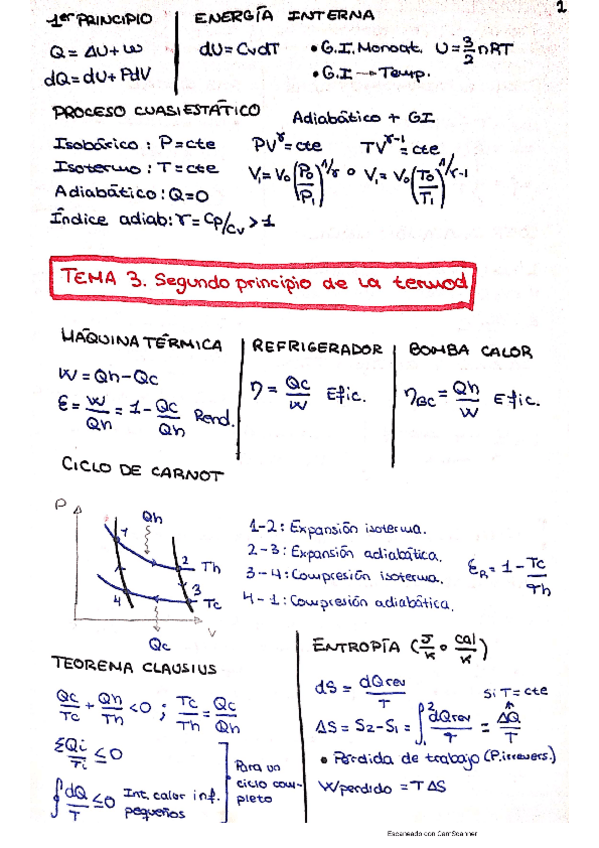 2
1er PRINCIPIO
Q = ΔU + W
dQ = dU + PdV
ENERGÍA INTERNA
dU = CvdT
• G.I. Monoat. U = 3/2 nRT
• G.I → Temp.
PROCESO CUASIESTÁTICO
Isobárico : P = cte
Isotermo : T = cte
Adiabático : Q = 0
Índice adiab: γ = Cp/Cv > 1
Adiabático + GI
PV^γ = cte TV^γ-1 = cte
V₁ = V₀(P₀/P₁)^1/γ o V₁ = V₀(T₀/T₁)^1/γ-1
TEMA 3. Segundo principio de la termod
MÁQUINA TÉRMICA
W = Qh - Qc
ε = W/Qh = 1 - Qc/Qh Rend.
REFRIGERADOR
η = Qc/W Efic.
BOMBA CALOR
ηBC = Qh/W Efic.
CICLO DE CARNOT
P
Qh
1
2
Th
3
4
Tc
V
Qc
1-2: Expansión isoterma.
2-3: Expansión adiabática.
3-4: Compresión isoterma.
4-1: Compresión adiabática.
εR = 1 - Tc/Th
TEOREMA CLAUSIUS
Qc/Tc + Qh/Th < 0 ; Tc/Th = Qc/Qh
ΣQi/Ti ≤ 0
∮dQ/T ≤ 0 Int. calor inf. pequeños
Para un
ciclo com-
pleto
ENTROPÍA (J/K o cal/K)
dS = dQrev/T
Si T = cte
ΔS = S2 - S1 = ∫₁² dQrev/T = ΔQ/T
• Pérdida de trabajo (P. irrevers.)
Wperdido = TΔS
Escaneado con CamScanner